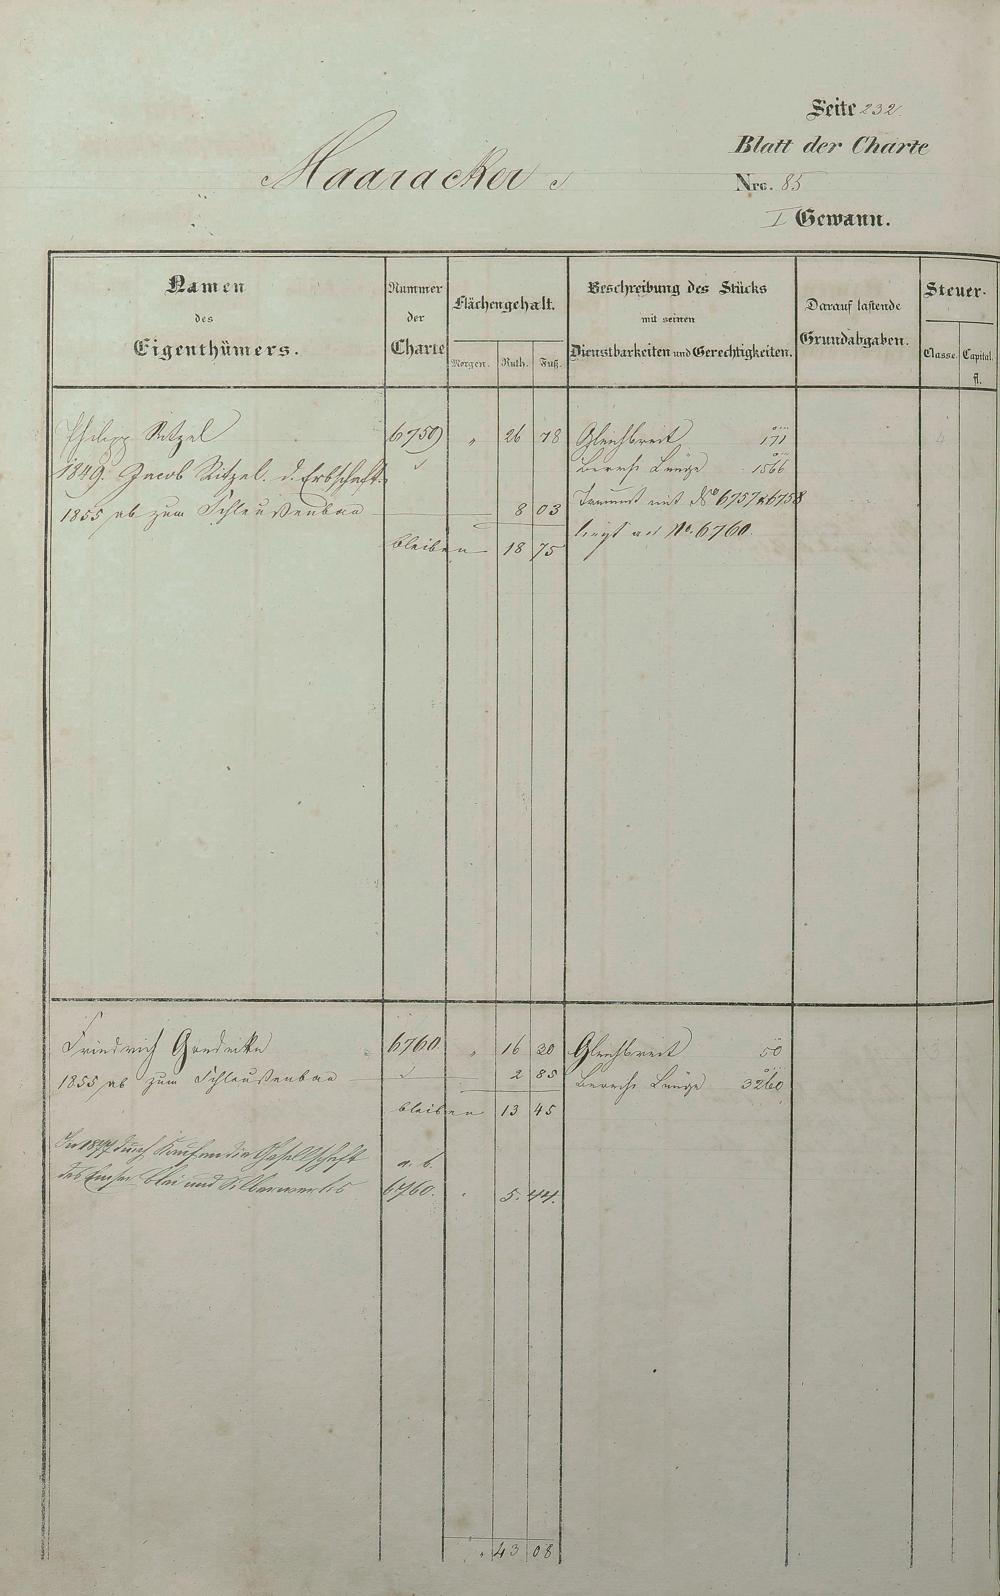 Seite 232.
Blatt der Charte
Maaracker
Nro. 85
I Gewann.
Namen des Eigenthümers.
Nummer der Charte
Flächengehalt.
Morgen. Ruth. Fuß.
Beschreibung des Stücks mit seinen Dienstbarkeiten und Gerechtigkeiten.
Darauf lastende Grundabgaben.
Steuer-
Classe. Capital.
fl.
Philipp Ritzel 6759 " 26 78 Gleichbreit 171
1849. Jacob Ritzel. d. Erbschaft. Länge 1566
1855 ab zum Schleußenbau 8 03 mit No 6757 & 6758
liegt an No. 6760
bleiben 18 75
Friedrich 6760 " 16 30 Gleichbreit 50
1855 ab zum Schleußenbau 2 85 Länge 3260
bleiben 13 45
In 1877 durch Kauf an die Gesellschaft a. b.
des Emser Blei und Silberwerks 6760. " 5. 44.
" 43 08